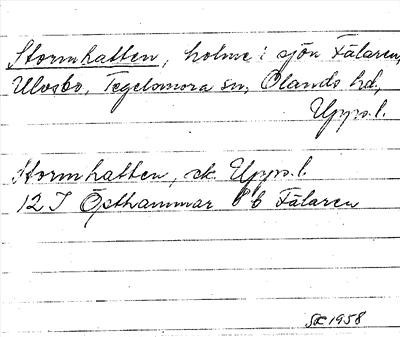 Stormhatten, holme i sjön Fälaren,
Ulvsbo, Tegelsmora sn, Olands hd,
Upps.l.
Stormhatten, ek. Upps.l.
12 I Östhammar 6 b Fälaren
SK 1958